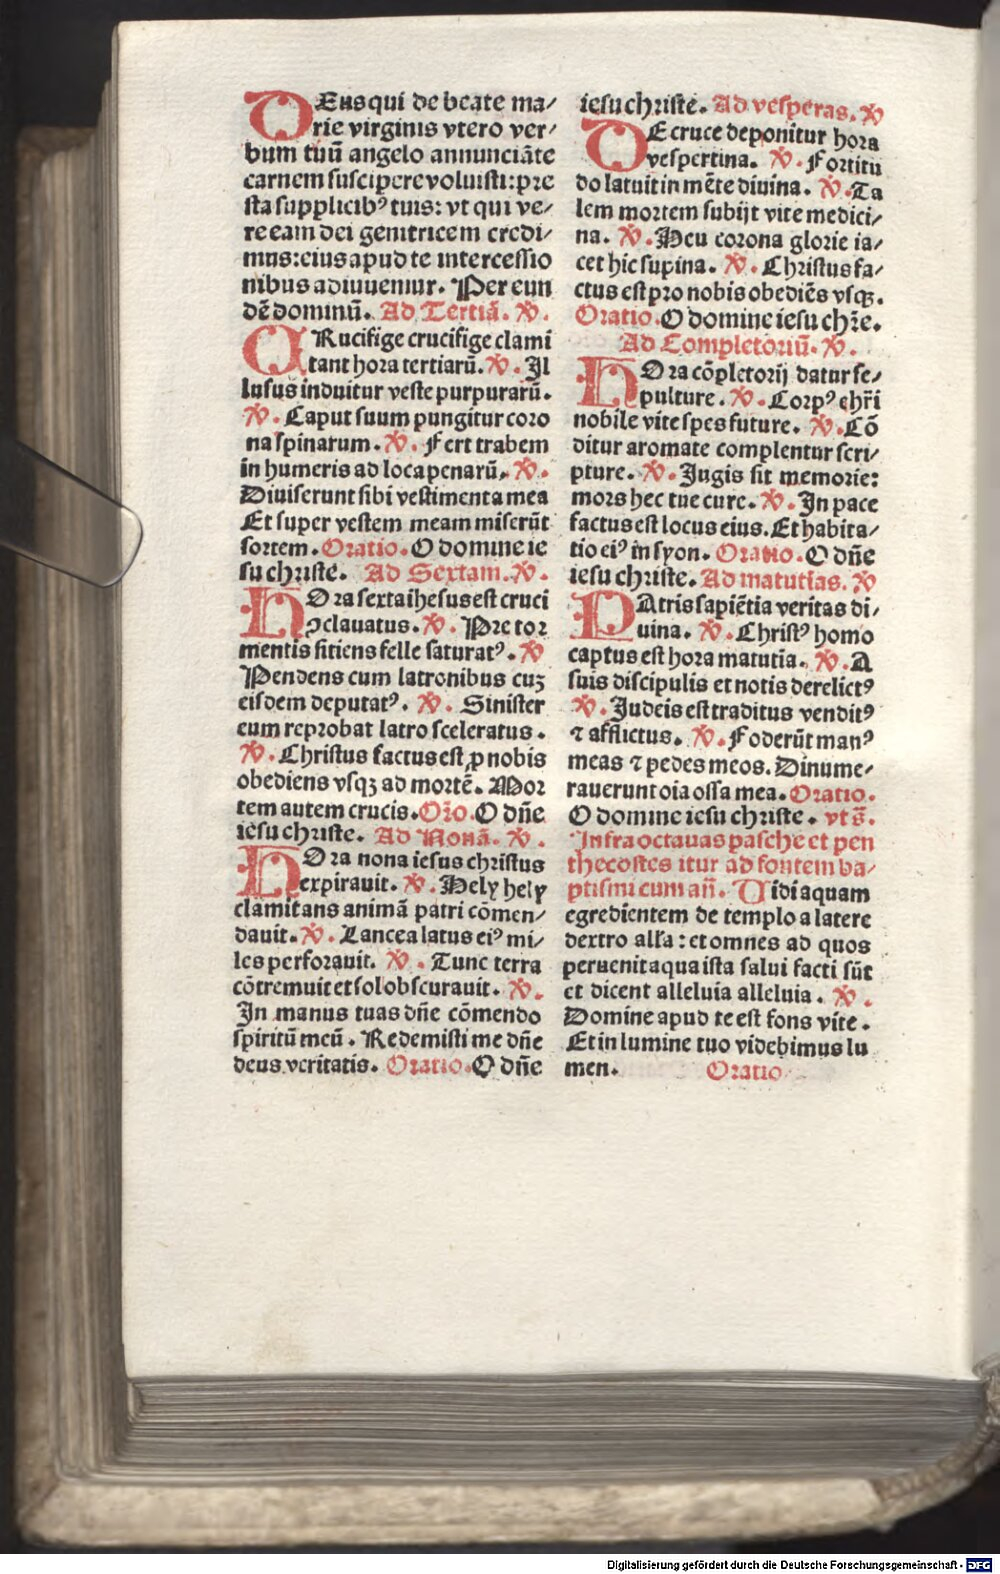 DEus qui de beate ma⸗
rie virginis vtero ver⸗
bum tuū angelo annunciāte
carnem suscipere voluisti: pre
sta supplicibꝰ tuis: vt qui ve⸗
re eam dei genitricem credi⸗
mus: eius apud te intercessio
nibus adiuuemur. Per eun
dē dominū. Ad Tertiā. ℣.
CRucifige crucifige clami
tant hora tertiarū. ℣. Il
lusus induitur veste purpurarū.
℣. Caput suum pungitur coro
na spinarum. ℣. Fert trabem
in humeris ad loca penarū. ℣.
Diuiserunt sibi vestimenta mea
Et super vestem meam miserūt
sortem. Oratio. O domine ie
su christe. Ad Sextam. ℣.
HOra sexta ihesus est cruci
ꝯclauatus. ℣. Pre tor
mentis sitiens felle saturatꝰ. ℣
Pendens cum latronibus cuȝ
eisdem deputatꝰ. ℣. Sinister
eum reprobat latro sceleratus.
℣. Christus factus est ꝓ nobis
obediens vsqȝ ad mortē. Mor
tem autem crucis. Orō. O dn̄e
iesu christe. Ad Nonā. ℣.
HOra nona iesus christus
expirauit. ℣. Hely hely
clamitans animā patri cōmen⸗
dauit. ℣. Lancea latus eiꝰ mi⸗
les perforauit. ℣. Tunc terra
cōtremuit et sol obscurauit. ℣.
In manus tuas dn̄e cōmendo
spiritū meū. Redemisti me dn̄e
deus veritatis. Oratio. O dn̄e
iesu christe. Ad vesperas. ℣
DE cruce deponitur hora
vespertina. ℣. Fortitu
do latuit in mēte diuina. ℣. Ta
lem mortem subijt vite medici⸗
na. ℣. Heu corona glorie ia⸗
cet hic supina. ℣. Christus fa⸗
ctus est pro nobis obediēs vsqȝ.
Oratio. O domine iesu chr̄e.
Ad Completoriū. ℣.
HOra cōpletorij datur se⸗
pulture. ℣. Corpꝰ chr̄i
nobile vite spes future. ℣. Cō
ditur aromate complentur scri⸗
pture. ℣. Jugis sit memorie:
mors hec tue cure. ℣. In pace
factus est locus eius. Et habita⸗
tio eiꝰ in syon. Oratio. O dn̄e
iesu christe. Ad matutīas. ℣
PAtris sapiētia veritas di⸗
uina. ℣. Christꝰ homo
captus est hora matutīa. ℣. A
suis discipulis et notis derelictꝰ
℣. Judeis est traditus venditꝰ
⁊ afflictus. ℣. Foderūt manꝰ
meas ⁊ pedes meos. Dinume⸗
rauerunt oīa ossa mea. Oratio.
O domine iesu christe. vt s̄.
Infra octauas pasche et pen
thecostes itur ad fontem ba⸗
ptismi cum an̄. Vidi aquam
egredientem de templo a latere
dextro all'a: et omnes ad quos
peruenit aqua ista salui facti sūt
et dicent alleluia alleluia. ℣.
Domine apud te est fons vite.
Et in lumine tuo videbimus lu
men. Oratio
Digitalisierung gefördert durch die Deutsche Forschungsgemeinschaft - DFG